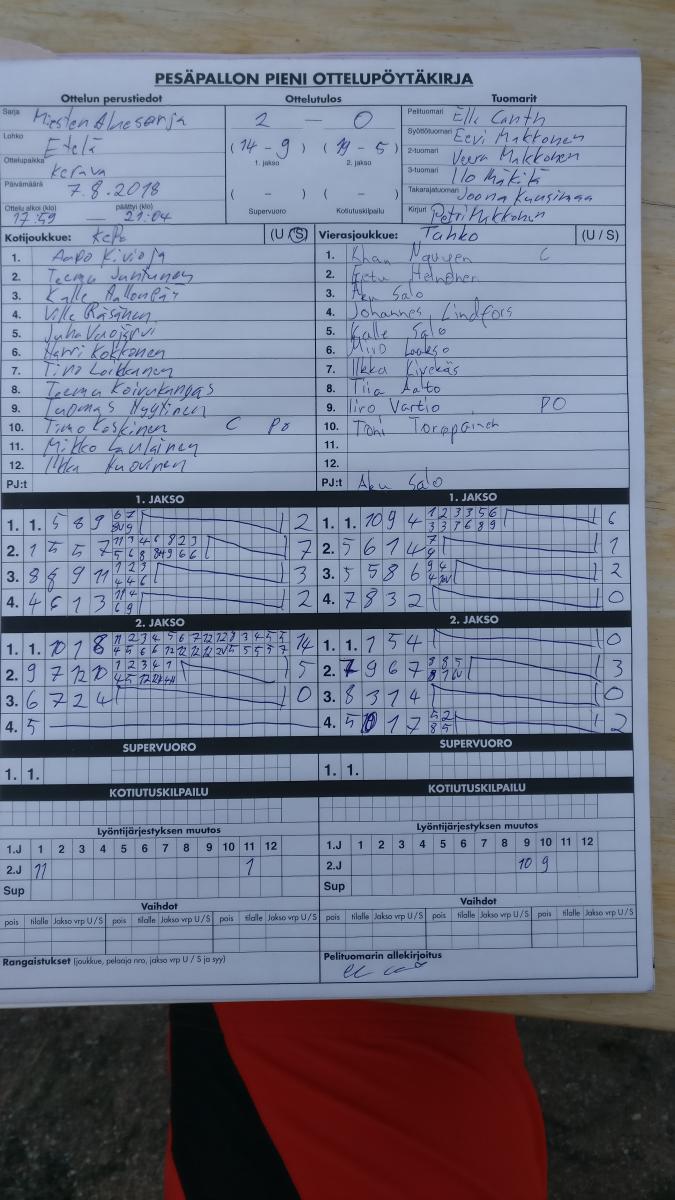 PESÄPALLON PIENI OTTELUPÖYTÄKIRJA
Ottelun perustiedot
Ottelutulos
Tuomarit
Sarja Miesten Aluesarja
2 — 0
Pelituomari Elli Canth
Lohko Etelä
(14 - 9) (19 - 5)
Syöttötuomari Eevi Makkonen
1. jakso 2. jakso
2-tuomari Veera Makkonen
Ottelupaikka Kerava
3-tuomari Ilo Mäkitä
Päivämäärä 7.8.2018
( - ) ( - )
Takarajatuomari Joona Kuusimaa
Ottelu alkoi (klo) päättyi (klo)
17:59 — 21:04
Supervuoro Kotiutuskilpailu
Kirjuri Petri Makkonen
Kotijoukkue: KePo (U / S)
Vierasjoukkue: Tahko (U / S)
1. Aapo Kivioja
2. Teemu Juntunen
3. Kalle Aallonpää
4. Ville Räsänen
5. Juha Vuojärvi
6. Harri Kokkonen
7. Timo Loikkanen
8. Teemu Koivukangas
9. Tuomas Hyytinen
10. Timo Koskinen C Po
11. Mikko Laulainen
12. Ilkka Huovinen
PJ:t
1. Khan Nguyen C
2. Eetu Heinonen
3. Aku Salo
4. Johannes Lindfors
5. Kalle Salo
6. Miro Laakso
7. Ilkka Kivekäs
8. Tiia Aalto
9. Iiro Vartio PO
10. Toni Torppainen
11.
12.
PJ:t Aku Salo
1. JAKSO
1. JAKSO
1. 1. 5 8 9 2
2. 1 5 5 7 7
3. 8 8 9 11 3
4. 4 6 1 3 2
1. 1. 10 9 4 6
2. 5 6 1 4 1
3. 5 5 8 6 2
4. 7 8 3 2 0
2. JAKSO
2. JAKSO
1. 1. 10 1 8 14
2. 9 7 12 10 5
3. 6 7 2 4 0
4. 5
1. 1. 1 5 4 0
2. 7 9 6 7 3
3. 8 3 1 4 0
4. 5 10 1 7 2
SUPERVUORO
SUPERVUORO
1. 1.
1. 1.
KOTIUTUSKILPAILU
KOTIUTUSKILPAILU
Lyöntijärjestyksen muutos
Lyöntijärjestyksen muutos
1.J 1 2 3 4 5 6 7 8 9 10 11 12
1.J 1 2 3 4 5 6 7 8 9 10 11 12
2.J 11 1
2.J 10 9
Sup
Sup
Vaihdot
Vaihdot
pois tilalle Jakso vrp U / S pois tilalle Jakso vrp U / S
pois tilalle Jakso vrp U / S pois tilalle Jakso vrp U / S
Rangaistukset (joukkue, pelaaja nro, jakso vrp U / S ja syy)
Pelituomarin allekirjoitus